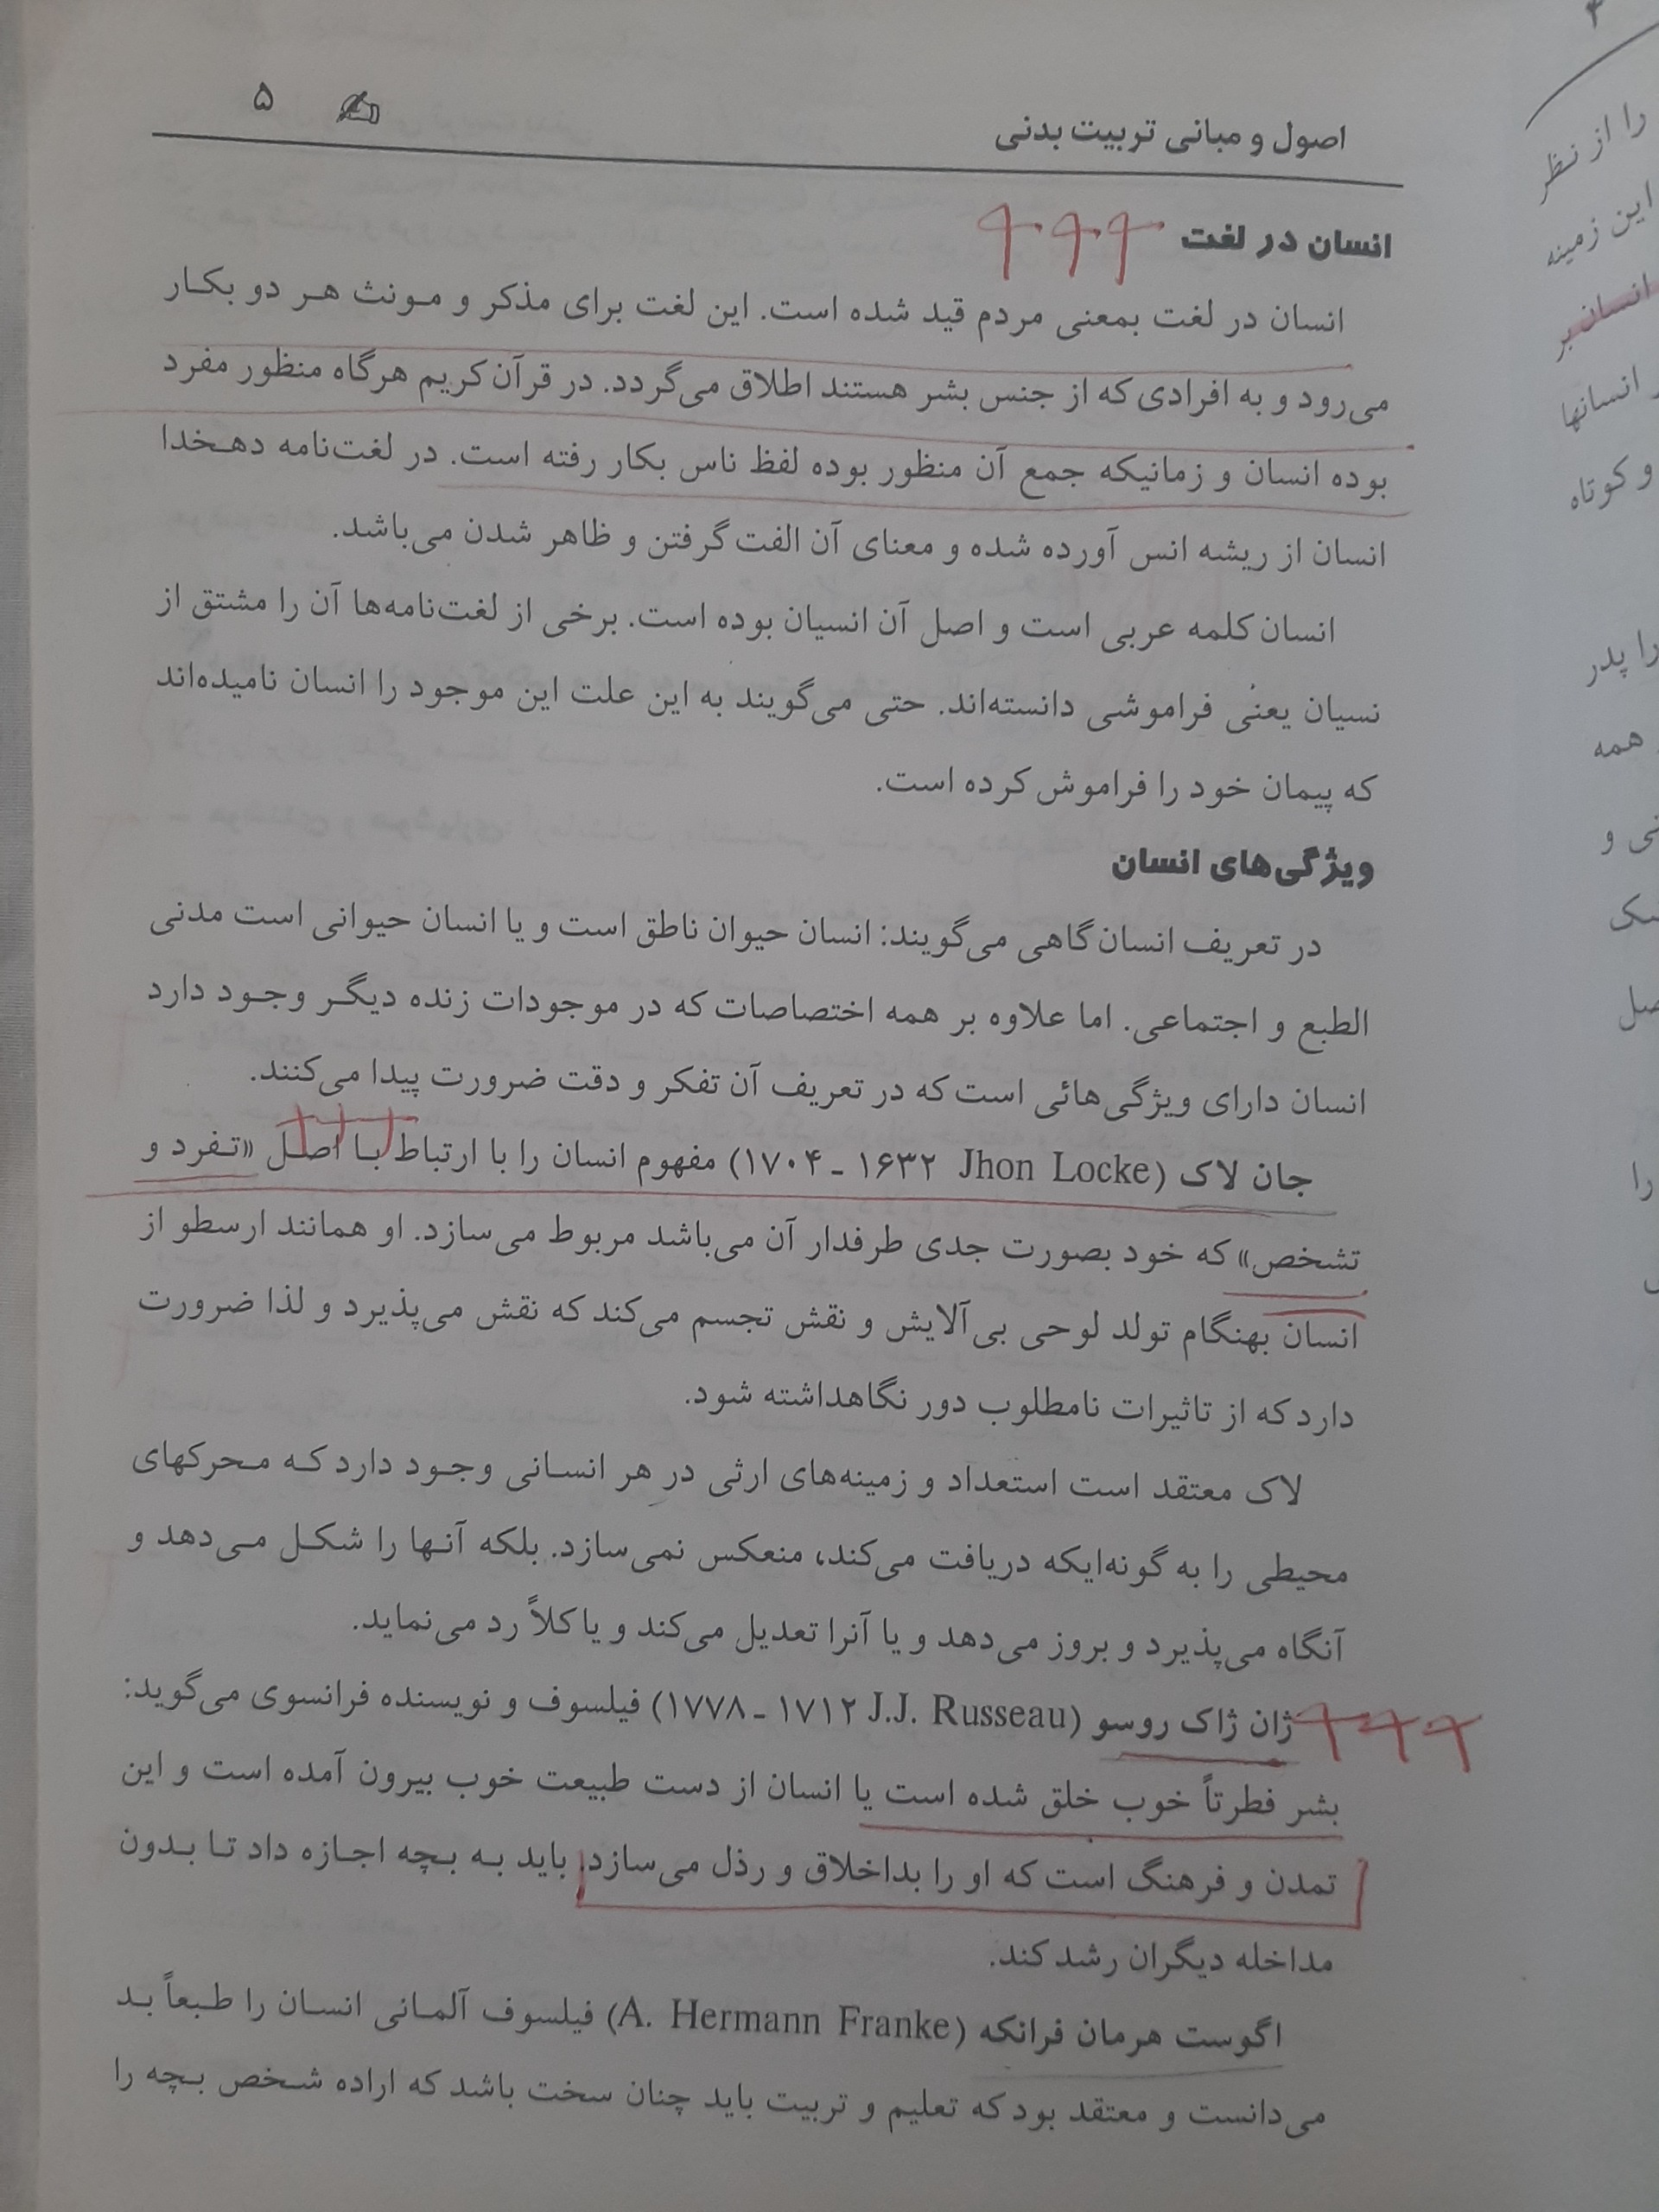 اصول و مبانی تربیت بدنی ۵
انسان در لغت
انسان در لغت بمعنی مردم قید شده است. این لغت برای مذکر و مونث هر دو بکار
می‌رود و به افرادی که از جنس بشر هستند اطلاق می‌گردد. در قرآن کریم هرگاه منظور مفرد
بوده انسان و زمانیکه جمع آن منظور بوده لفظ ناس بکار رفته است. در لغت‌نامه دهخدا
انسان از ریشه انس آورده شده و معنای آن الفت گرفتن و ظاهر شدن می‌باشد.
انسان کلمه عربی است و اصل آن انسیان بوده است. برخی از لغت‌نامه‌ها آن را مشتق از
نسیان یعنی فراموشی دانسته‌اند. حتی می‌گویند به این علت این موجود را انسان نامیده‌اند
که پیمان خود را فراموش کرده است.
ویژگی‌های انسان
در تعریف انسان گاهی می‌گویند: انسان حیوان ناطق است و یا انسان حیوانی است مدنی
الطبع و اجتماعی. اما علاوه بر همه اختصاصات که در موجودات زنده دیگر وجود دارد
انسان دارای ویژگی‌هائی است که در تعریف آن تفکر و دقت ضرورت پیدا می‌کنند.
جان لاک (Jhon Locke ۱۶۳۲ ـ ۱۷۰۴) مفهوم انسان را با ارتباط با اصل «تفرد و
تشخص» که خود بصورت جدی طرفدار آن می‌باشد مربوط می‌سازد. او همانند ارسطو از
انسان بهنگام تولد لوحی بی‌آلایش و نقش تجسم می‌کند که نقش می‌پذیرد و لذا ضرورت
دارد که از تاثیرات نامطلوب دور نگاهداشته شود.
لاک معتقد است استعداد و زمینه‌های ارثی در هر انسانی وجود دارد که محرکهای
محیطی را به گونه‌ایکه دریافت می‌کند، منعکس نمی‌سازد. بلکه آنها را شکل می‌دهد و
آنگاه می‌پذیرد و بروز می‌دهد و یا آنرا تعدیل می‌کند و یا کلاً رد می‌نماید.
ژان ژاک روسو (J.J. Russeau ۱۷۱۲ ـ ۱۷۷۸) فیلسوف و نویسنده فرانسوی می‌گوید:
بشر فطرتاً خوب خلق شده است یا انسان از دست طبیعت خوب بیرون آمده است و این
تمدن و فرهنگ است که او را بداخلاق و رذل می‌سازد. باید به بچه اجازه داد تا بدون
مداخله دیگران رشد کند.
اگوست هرمان فرانکه (A. Hermann Franke) فیلسوف آلمانی انسان را طبعاً بد
می‌دانست و معتقد بود که تعلیم و تربیت باید چنان سخت باشد که اراده شخص بچه را
۴
را از نظر
این زمینه
انسان بر
انسانها
و کوتاه
را پدر
همه
را